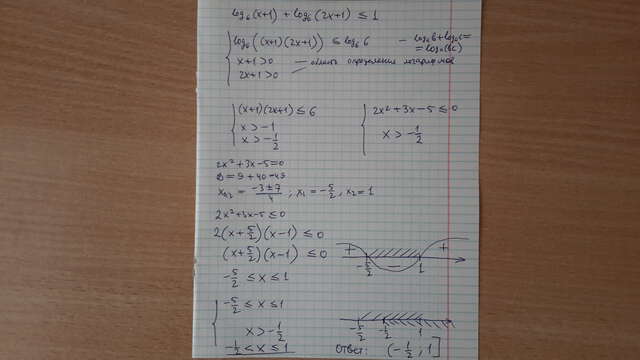 log₆(x+1) + log₆(2x+1) ≤ 1
log₆((x+1)(2x+1)) ≤ log₆6 — logₐb + logₐc =
= logₐ(bc)
x+1>0 — область определения логарифмов
2x+1>0
(x+1)(2x+1) ≤ 6
x > -1
x > -1/2
2x²+3x-5 ≤ 0
x > -1/2
2x²+3x-5=0
D = 9+40=49
x₁,₂ = (-3±7)/4 ; x₁ = -5/2, x₂ = 1
2x²+3x-5 ≤ 0
2(x+5/2)(x-1) ≤ 0
(x+5/2)(x-1) ≤ 0
+ +
-5/2 1
-5/2 ≤ x ≤ 1
-5/2 ≤ x ≤ 1
x > -1/2
-5/2 -1/2 1
-1/2 < x ≤ 1
Ответ: (-1/2, 1]